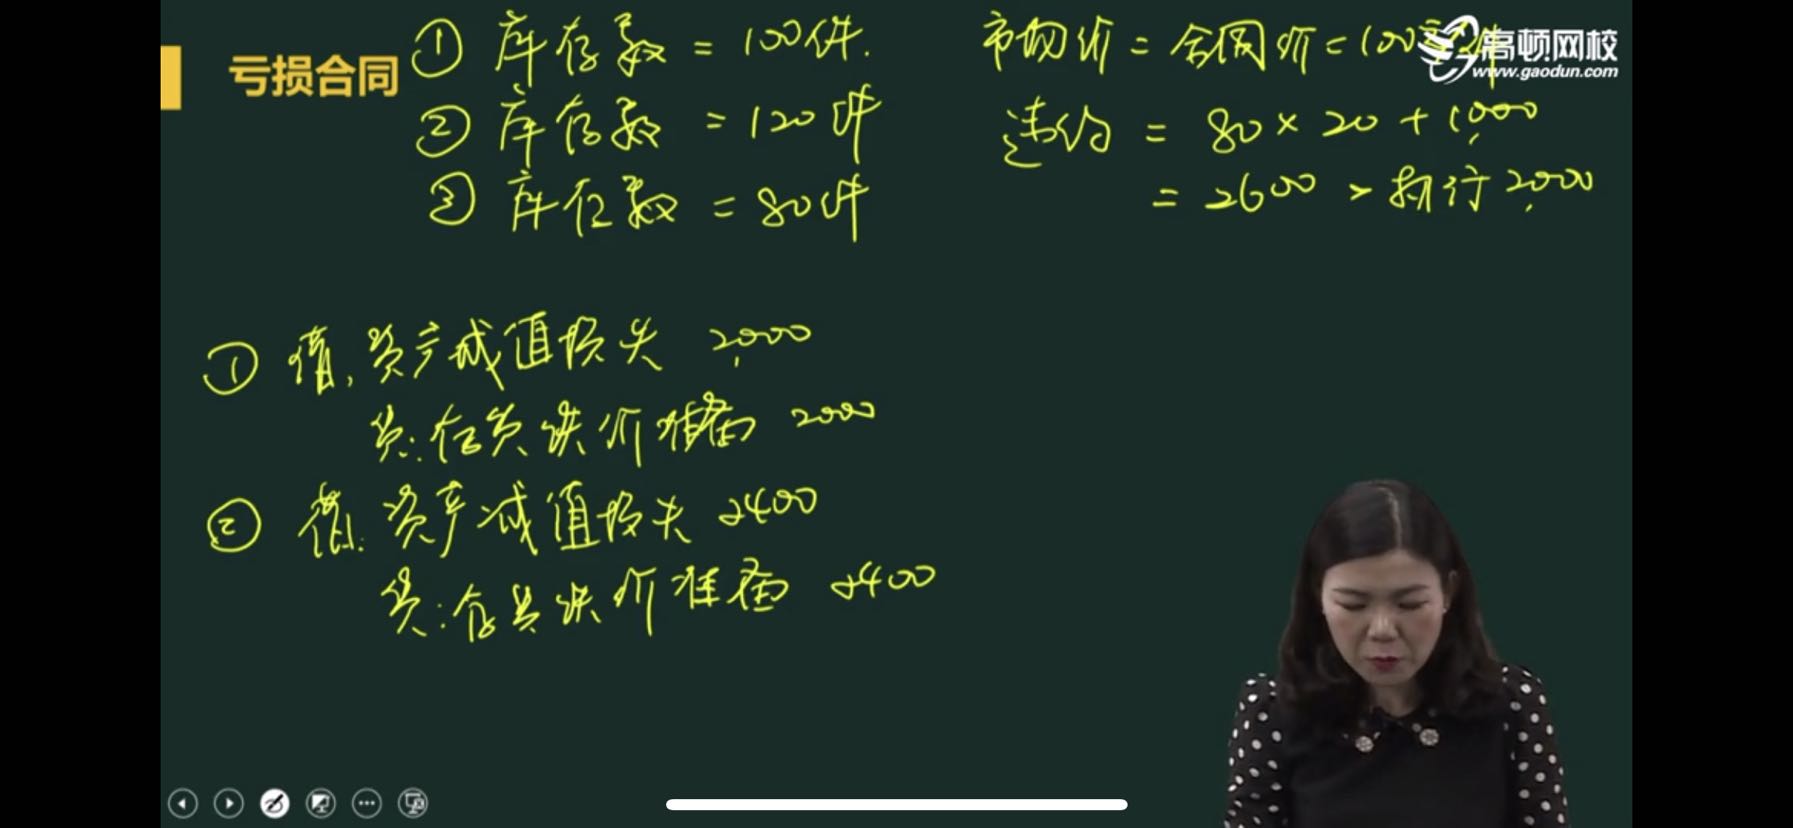 亏损合同
① 库存数 = 100件.
② 库存数 = 120件
③ 库存数 = 80件
市场价 = 合同价 = 100
高顿网校
www.gaodun.com
违约 = 80 × 20 + 1,000
= 2600 > 执行 2,000
① 借, 资产减值损失 2,000
贷: 存货跌价准备 2000
② 借: 资产减值损失 2400
贷: 存货跌价准备 2400